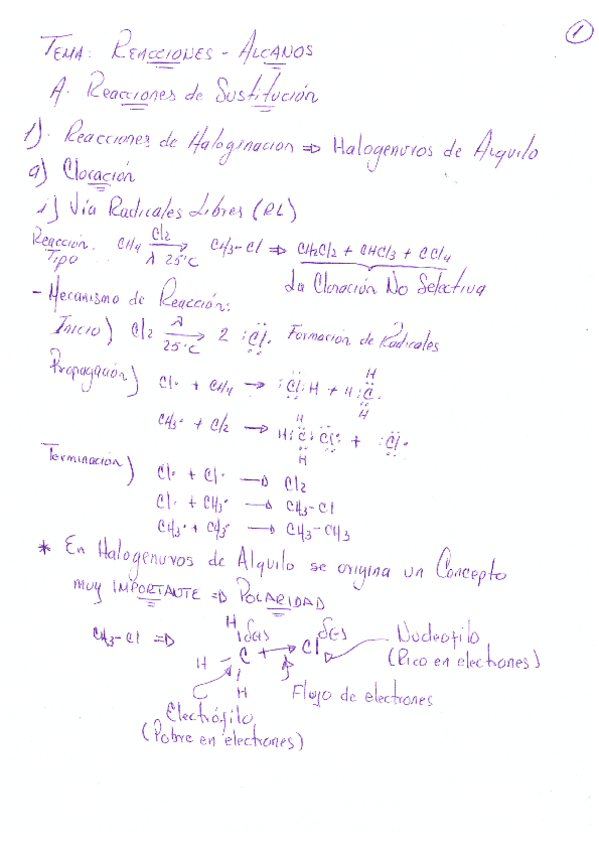 1
TEMA: REACCIONES - ALCANOS
A. Reacciones de Sustitución
1). Reacciones de Haloginacion ⇒ Halogenuros de Alquilo
a) Cloración
i) Vía Radicales Libres (RL)
Reacción Tipo CH4 Cl2 → λ 25°C CH3-Cl ⇒ CH2Cl2 + CHCl3 + CCl4
La Cloración No Selectiva
- Mecanismo de Reacción:
Inicio) Cl2 λ → 25°C 2 :Cl· Formación de Radicales
Propagación) Cl· + CH4 → :Cl:H + H:C· H H
CH3· + Cl2 → H:C:Cl: + :Cl· H H
Terminación) Cl· + Cl· → Cl2
Cl· + CH3· → CH3-Cl
CH3· + CH3· → CH3-CH3
* En Halogenuros de Alquilo se origina un Concepto
muy IMPORTANTE ⇒ POLARIDAD
CH3-Cl ⇒ H H - C Cl H
Nucleofilo
(Rico en electrones)
Flujo de electrones
Electrófilo
(Pobre en electrones)